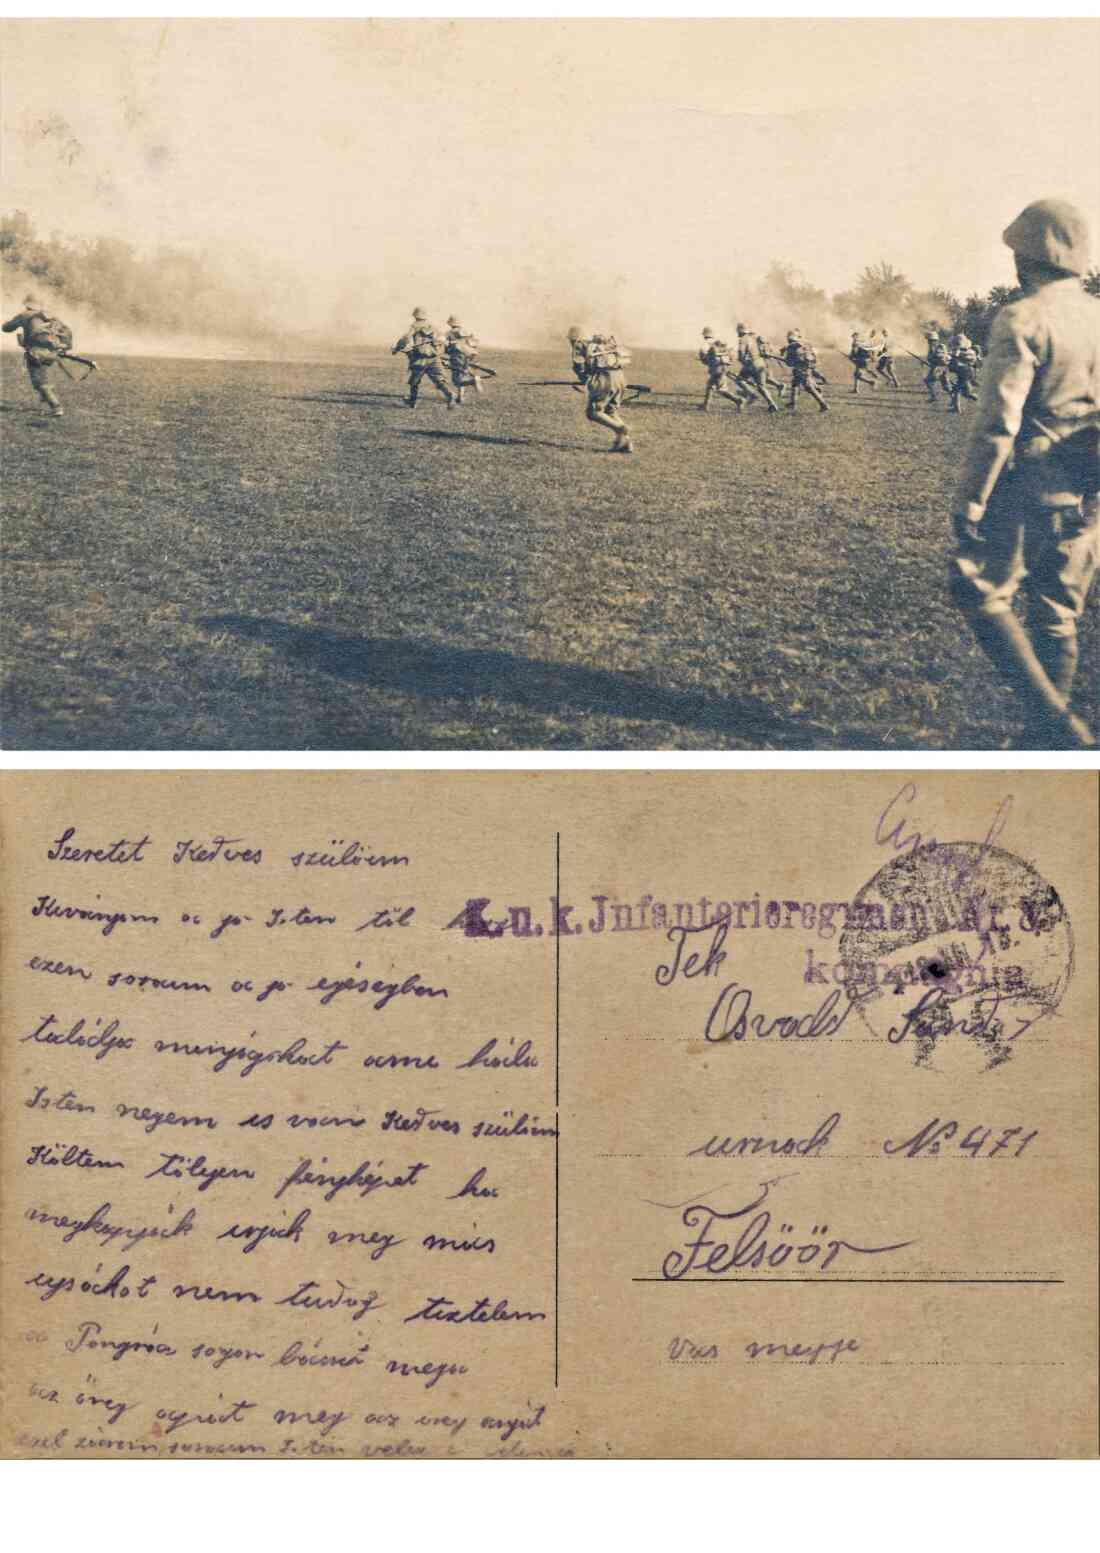 Szeretet Kedves szülöim
Kivánom a jo Isten töl
ezen soraim a jo egéségben
találja menyigokat ame hála
Isten negem is van Kedves szülöim
Költem tölegen fényképet ha
megkapják irják meg más
ujságot nem tudog tisztelem
a Pongrác sogon bácsit mega
az öreg apiát meg az öreg anyát
ezel zárom soraim Isten vele
K.u.k. Infanterieregiment Nr. 8
kompagnie
Tek
Osvald
urnak No 471
Felsöör
Vas megye